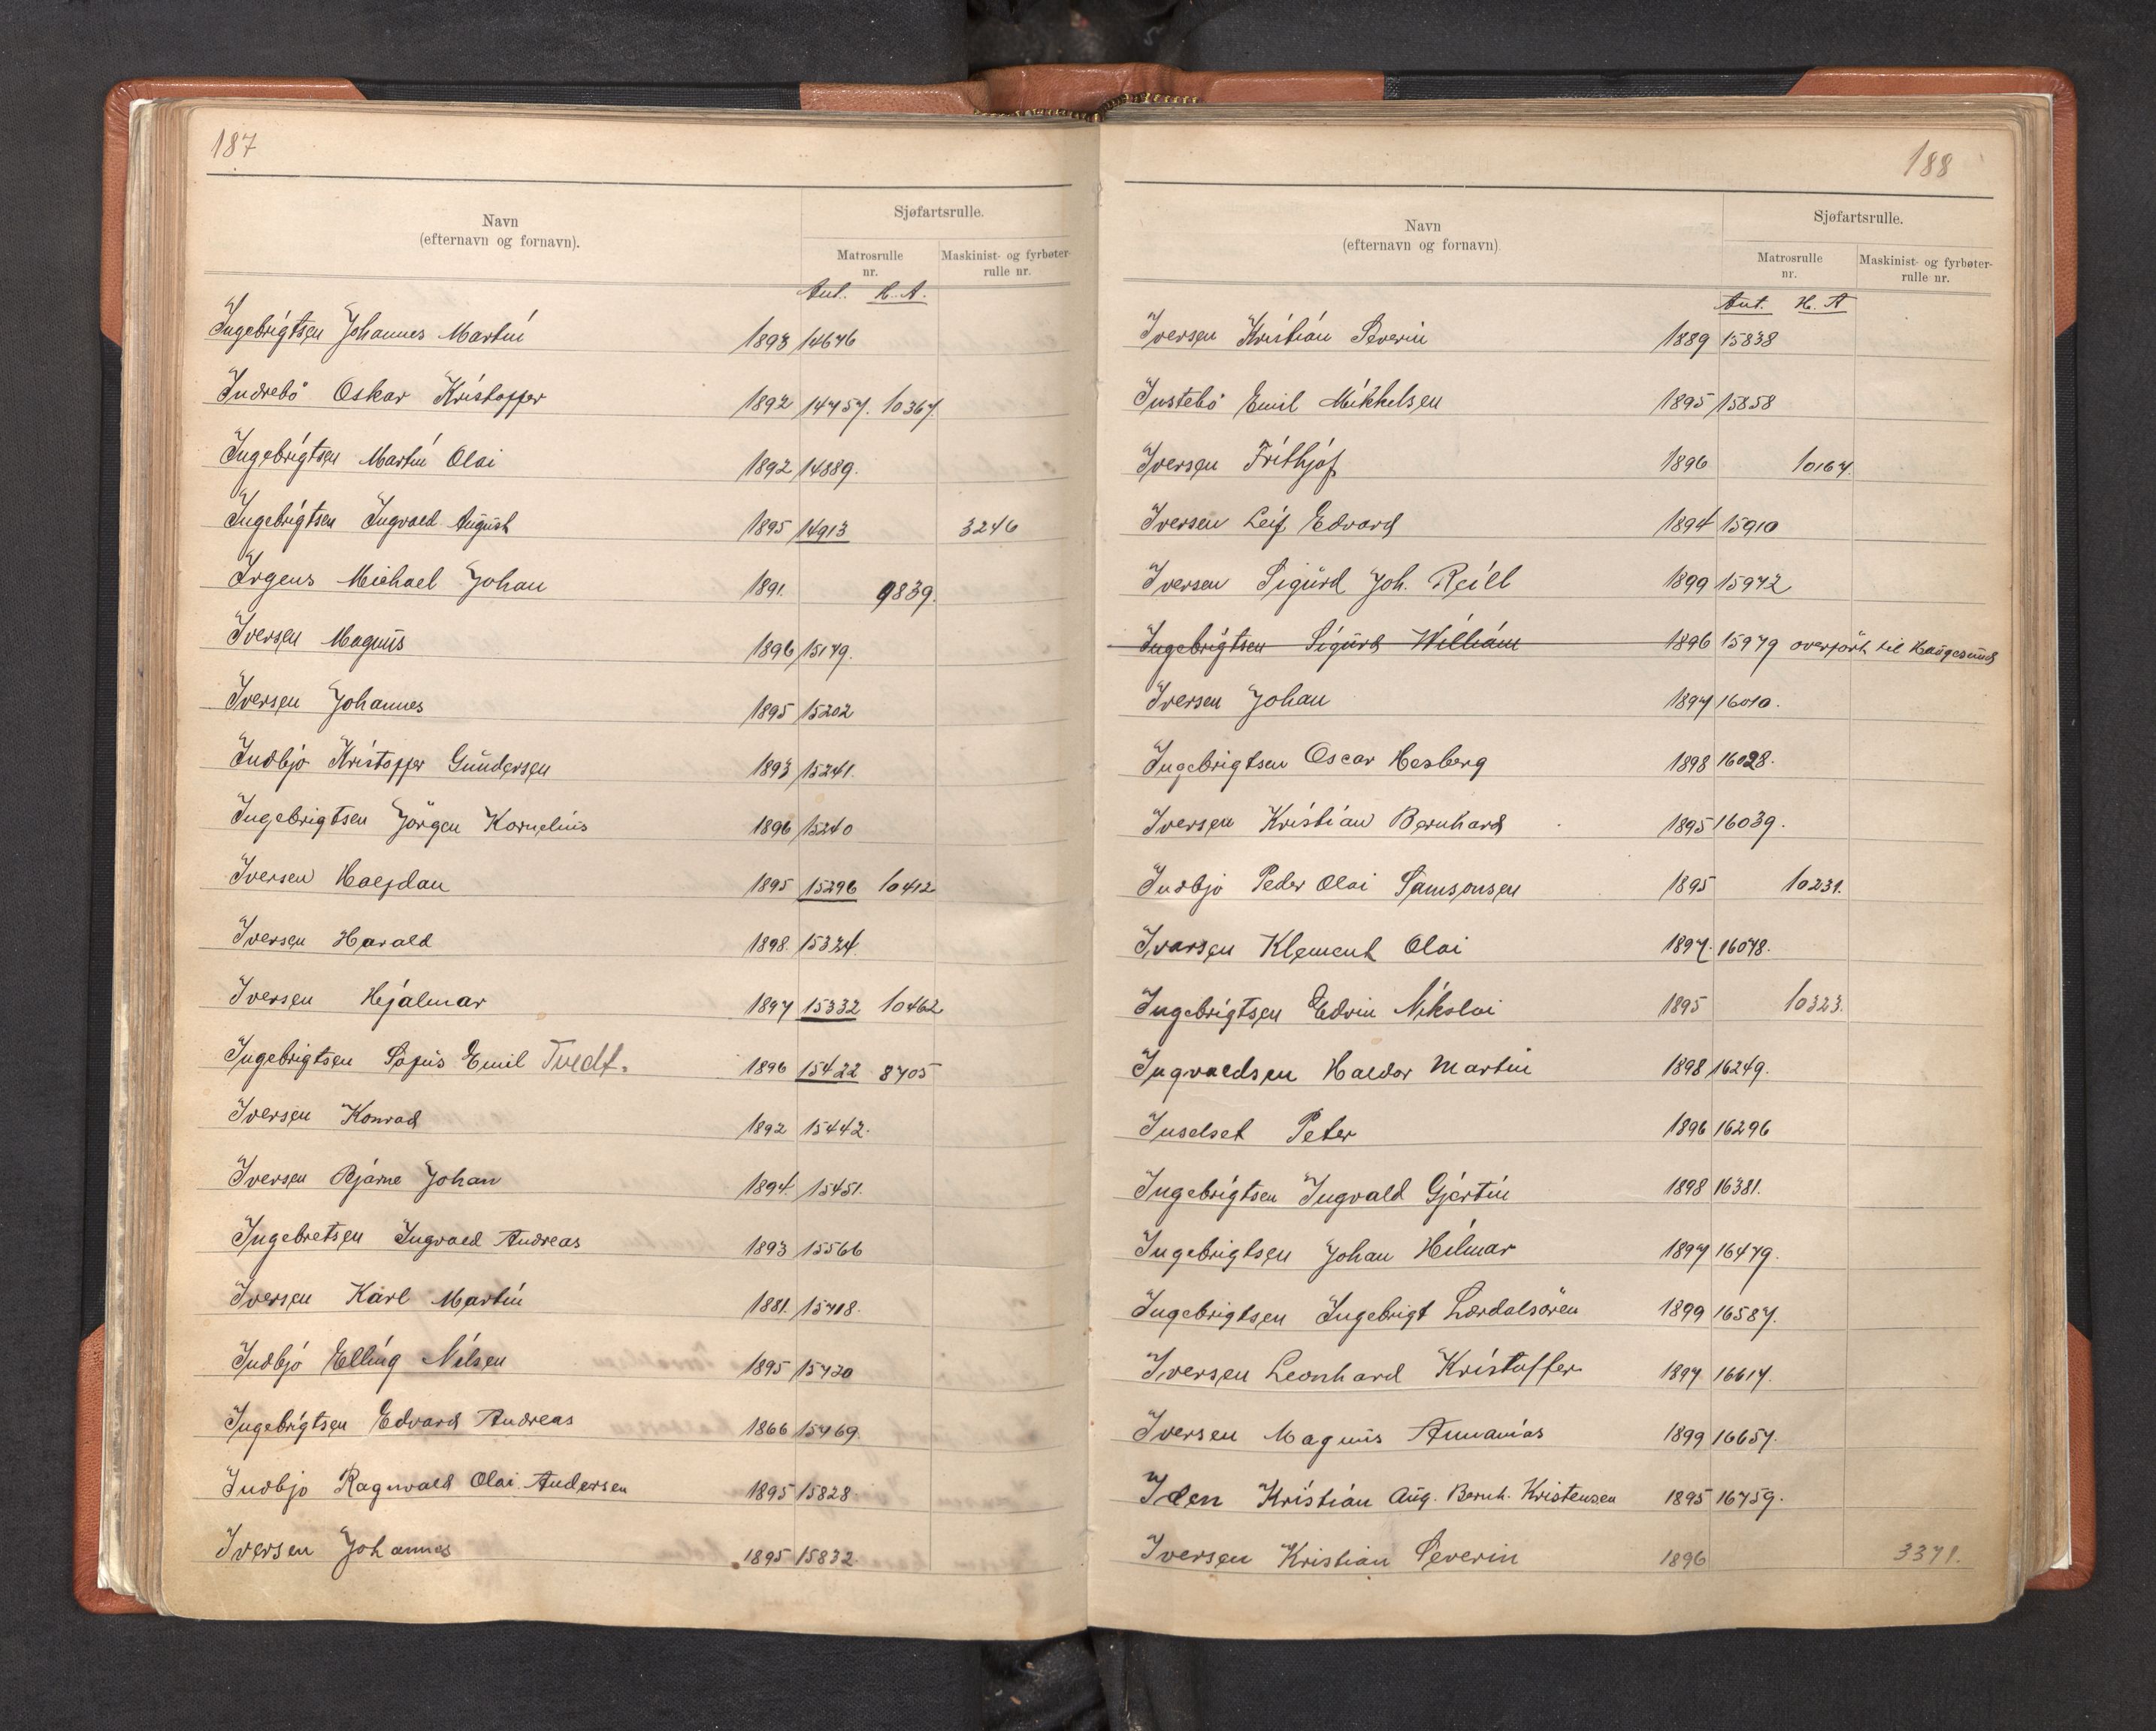 187
Navn
(efternavn og fornavn).
Sjøfartsrulle.
Matrosrulle
nr.
Maskinist- og fyrbøter-
rulle nr.
Ant. H. A.
Ingebrigtsen Johannes Martin 1893 14646
Indrebö Oskar Kristoffer 1892 14757. 10367.
Ingebrigtsen Martin Olai 1892 14889.
Ingebrigtsen Ingvald August 1895 14913 3246
Irgens Michael Johan 1891. 9839.
Iversen Magnus 1896 15179.
Iversen Johannes 1895 15202
Indbjo Kristoffer Gundersen 1893 15241.
Ingebrigtsen Jörgen Kornelius 1896 15240
Iversen Halfdan 1895 15296 10412
Iversen Harald 1898. 15324.
Iversen Hjalmar 1897 15332 10462
Ingebrigtsen Sofus Emil Tvedt. 1896 15422 8705
Iversen Konrad 1892 15442.
Iversen Bjarne Johan 1894. 15451.
Ingebretsen Ingvald Andreas 1893 15566
Iversen Karl Martin 1881. 15718.
Indbjo Elling Nilsen 1895 15720
Ingebrigtsen Edvard Andreas 1866 15769.
Indbjo Ragnvald Olai Andersen 1895 15828.
Iversen Johannes 1895 15832.
188
Navn
(efternavn og fornavn).
Sjøfartsrulle.
Matrosrulle
nr.
Maskinist- og fyrbøter-
rulle nr.
Ant. H. A
Iversen Kristian Severin 1889 15838
Instebö Emil Mikkelsen 1895 15858
Iversen Frithjof 1896 10167.
Iversen Leif Edvard 1894 15910
Iversen Sigurd Joh. Reill 1899 15972
Ingebrigtsen Sigurd William 1896 15979 overfört til Haugesund
Iversen Johan 1897 16010.
Ingebrigtsen Oscar Hesberg 1898 16028.
Iversen Kristian Bernhard 1895 16039.
Indbjo Peder Olai Samsonsen 1895 10231.
Ivarsen Klement Olai 1897. 16078.
Ingebrigtsen Edvin Nikolai 1895 10323.
Ingvaldsen Haldor Martin 1898 16249.
Inselset Peter 1896 16296
Ingebrigtsen Ingvald Gjertin 1898 16381.
Ingebrigtsen Johan Hilmar 1897 16479.
Ingebrigtsen Ingebrigt Lærdalsören 1899 16587.
Iversen Leonhard Kristoffer 1897 16617.
Iversen Magnus Annanias 1899 16657.
Iden Kristian Aug. Bernh. Kristensen 1895 16759.
Iversen Kristian Severin 1896 3371.